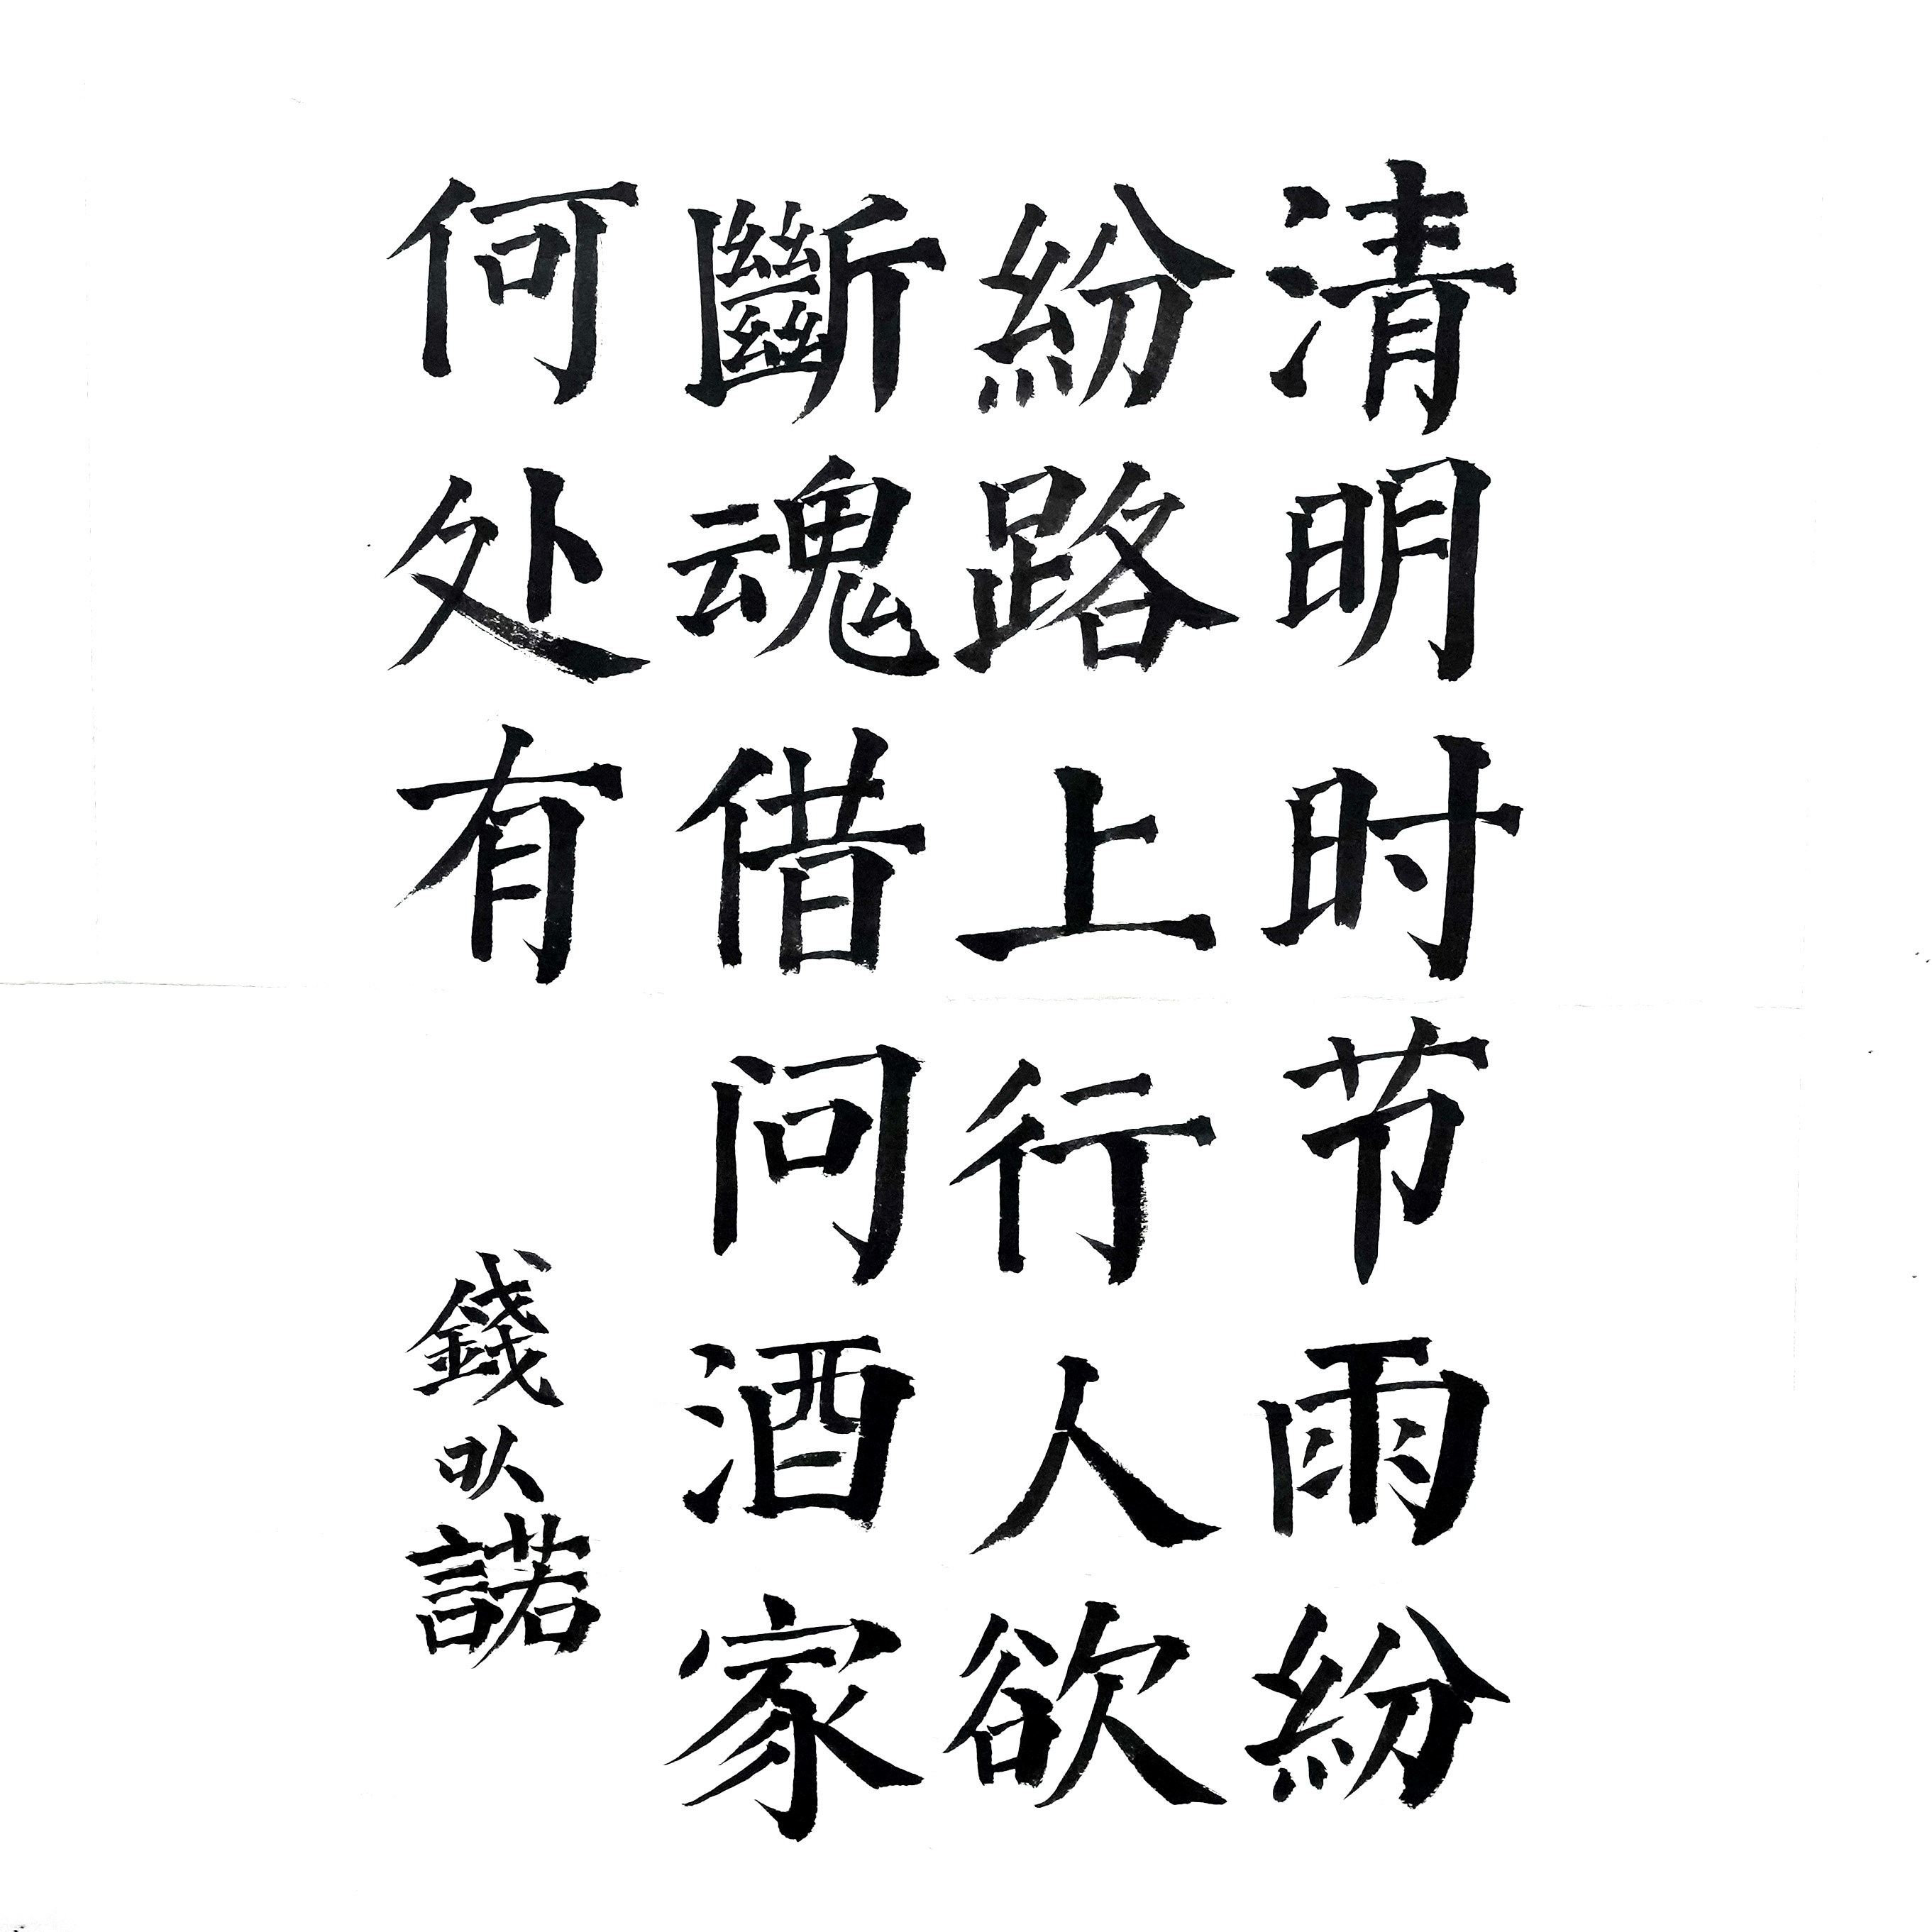 清明时节雨紛
紛路上行人欲
斷魂借问酒家
何处有
錢㕥諾